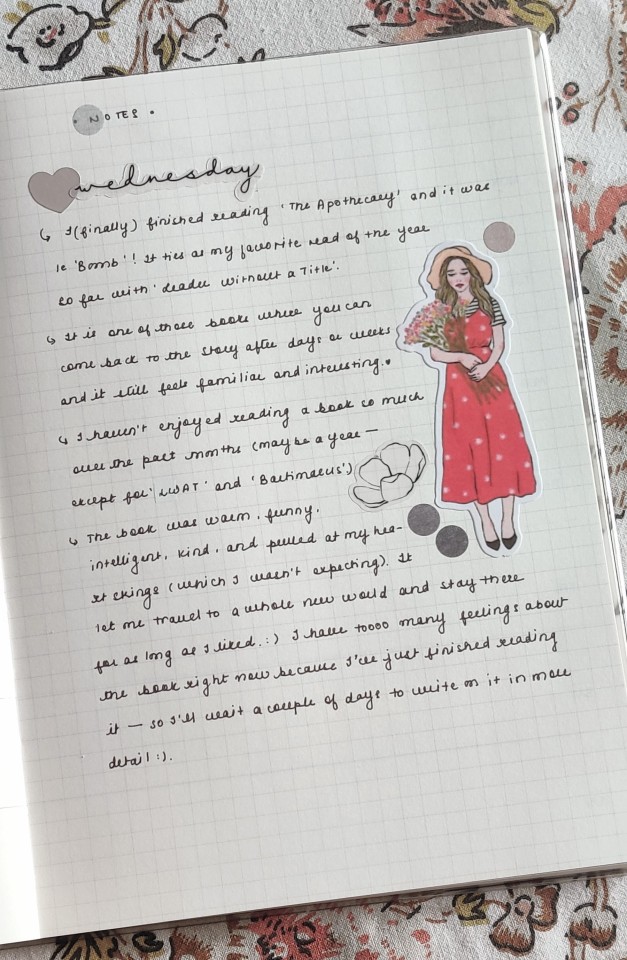 • NOTES •
wednesday
↳ I (finally) finished reading 'The Apothecary' and it was
le 'Bomb'! It ties as my favorite read of the year
so far with 'Leader Without a Title'.
↳ It is one of those books where you can
come back to the story after days or weeks
and it still feels familiar and interesting.♥
↳ I haven't enjoyed reading a book so much
over the past months (maybe a year —
except for 'LWAT' and 'Bartimaeus')
↳ The book was warm, funny,
intelligent, kind, and pulled at my hea-
rt strings (which I wasn't expecting). It
let me travel to a whole new world and stay there
for as long as I liked. :) I have toooo many feelings about
the book right now because I've just finished reading
it — so I'll wait a couple of days to write on it in more
detail :).